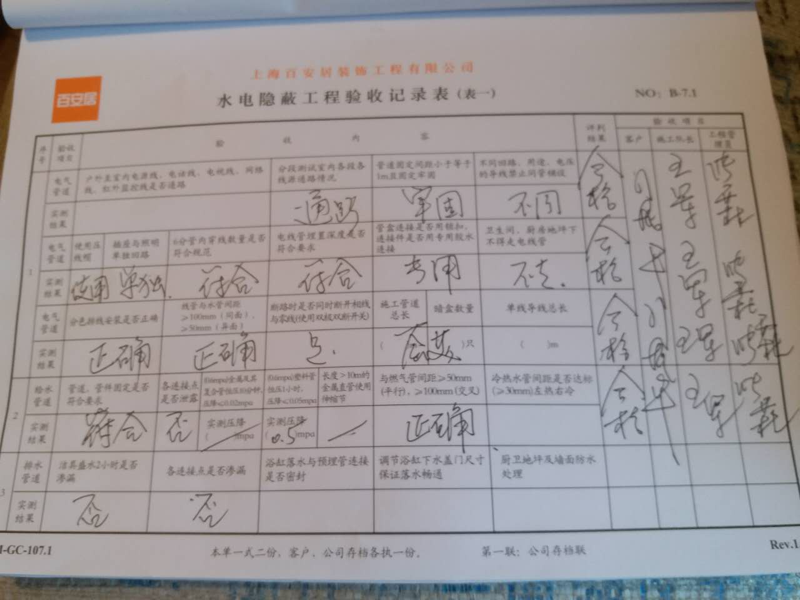 百安居
上海百安居装饰工程有限公司
水电隐蔽工程验收记录表（表一）
NO：B-7.1
序号 验收项目 验收内容 评判结果 验收项目
客户 施工队长 工程管理员
1
电气管道 户外至室内电源线、电话线、电视线、网络线、红外监控线是否通路 分段测试室内各段各线源通路情况 管道固定间距小于等于1m且固定牢固 不同回路、用途、电压的导线禁止同管铺设
实测结果 通路 牢固 不同 合格
电气管道 使用压线帽 插座与照明单独回路 6分管内穿线数量是否符合规范 电线管埋置深度是否符合要求 管盒连接是否用锁扣，连接件是否用专用胶水连接 卫生间、厨房地坪下不得走电线管
实测结果 使用 单独 符合 符合 专用 不走 合格
电气管道 分色排线安装是否正确 线管与水管间距≥100mm（同面），≥50mm（异面） 断路时是否同时断开相线与零线(使用双极双断开关) 施工管道总长 暗盒数量 单线导线总长
实测结果 正确 正确 是 ( )只 ( )m 合格
2
给水管道 管道、管件固定是否符合要求 各连接点是否泄露 长度>10m的金属直管使用伸缩节 与燃气管间距≥50mm(平行)，≥100mm(交叉) 冷热水管间距是否达标(≥30mm)左热右冷
实测结果 符合 否 实测压降( )mpa 实测压降 0.5 mpa 正确 合格
3
排水管道 洁具盛水2小时是否渗漏 各连接点是否渗漏 浴缸落水与预埋管连接是否密封 调节浴缸下水盖门尺寸保证落水畅通 厨卫地坪及墙面防水处理
实测结果 否 否
-GC-107.1 本单一式二份，客户、公司存档各执一份。 第一联：公司存档联 Rev.1